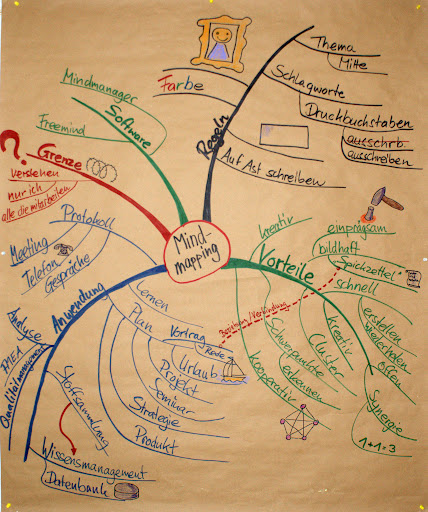 Mind-
mapping
Regeln
Thema
Mitte
Schlagworte
Druckbuchstaben
ausschrb.
ausschreiben
Auf Ast schreiben
Farbe
Software
Mindmanager
Freemind
Grenze
?
verstehen
nur ich
alle die mitarbeiten
Vorteile
kreativ
einprägsam
bildhaft
"Spickzettel"
schnell
erstellen
wiederholen
offen
Synergie
1+1=3
kreativ
Cluster
Schwerpunkte
erkennen
kooperativ
Beziehung/Verbindung
Anwendung
Protokoll
Meeting
Telefon
Gespräche
Lernen
Plan
Vortrag
Rede
Urlaub
Projekt
Seminar
Strategie
Produkt
Analyse
FMEA
Qualitätsmanagement
Stoffsammlung
Wissensmanagement
Datenbank